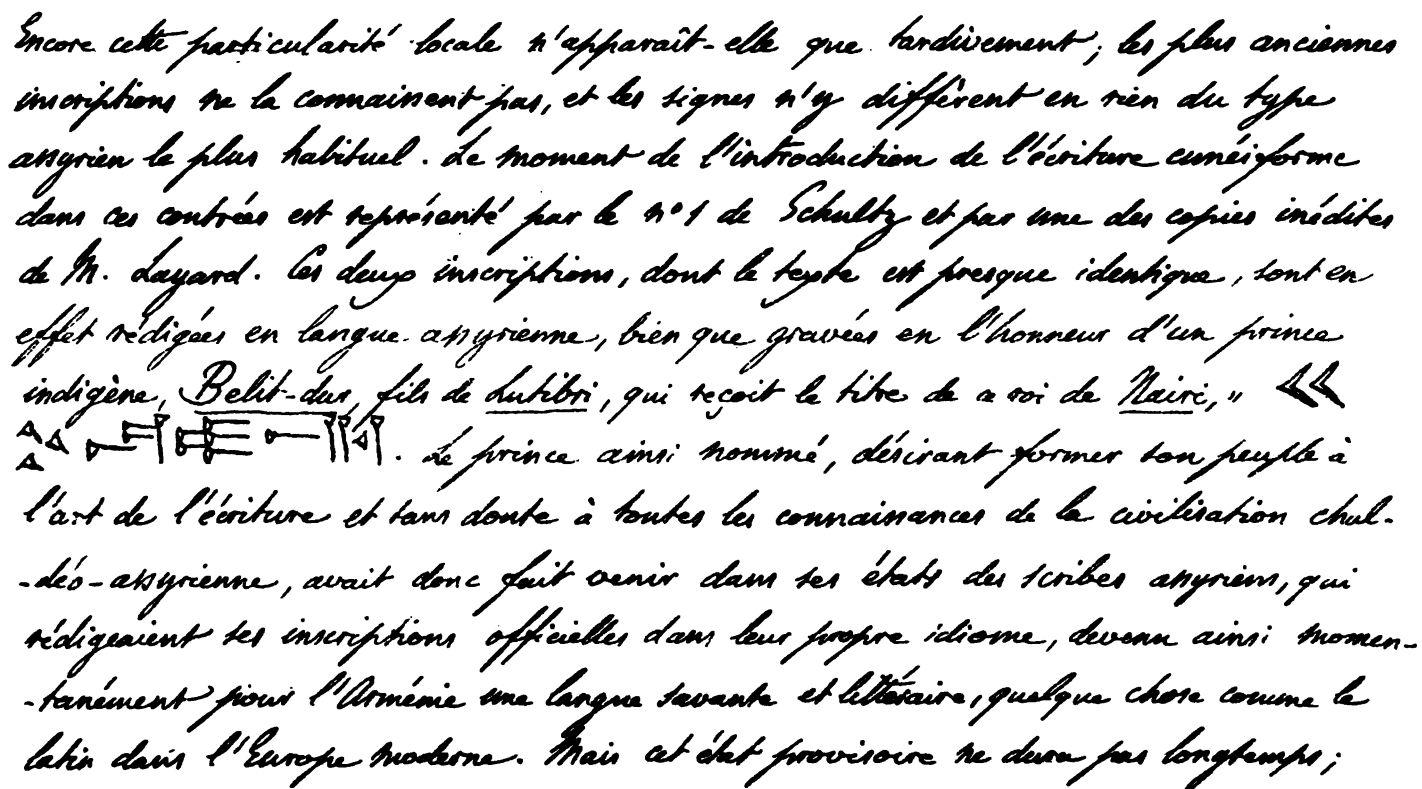 Encore cette particularité locale n'apparaît-elle que tardivement ; les plus anciennes
inscriptions ne la connaissent pas, et les signes n'y diffèrent en rien du type
assyrien le plus habituel. Le moment de l'introduction de l'écriture cunéiforme
dans ces contrées est représenté par le n° 1 de Schultz et par une des copies inédites
de M. Layard. Ces deux inscriptions, dont le texte est presque identique, sont en
effet rédigées en langue assyrienne, bien que gravées en l'honneur d'un prince
indigène, Belit-dur, fils de Lutibri, qui reçoit le titre de « roi de Nairi, »
. Le prince ainsi nommé, désirant former son peuple à
l'art de l'écriture et sans doute à toutes les connaissances de la civilisation chal-
-déo-assyrienne, avait donc fait venir dans ses états des scribes assyriens, qui
rédigeaient ses inscriptions officielles dans leur propre idiome, devenu ainsi momen-
-tanément pour l'Arménie une langue savante et littéraire, quelque chose comme le
latin dans l'Europe moderne. Mais cet état provisoire ne dura pas longtemps ;